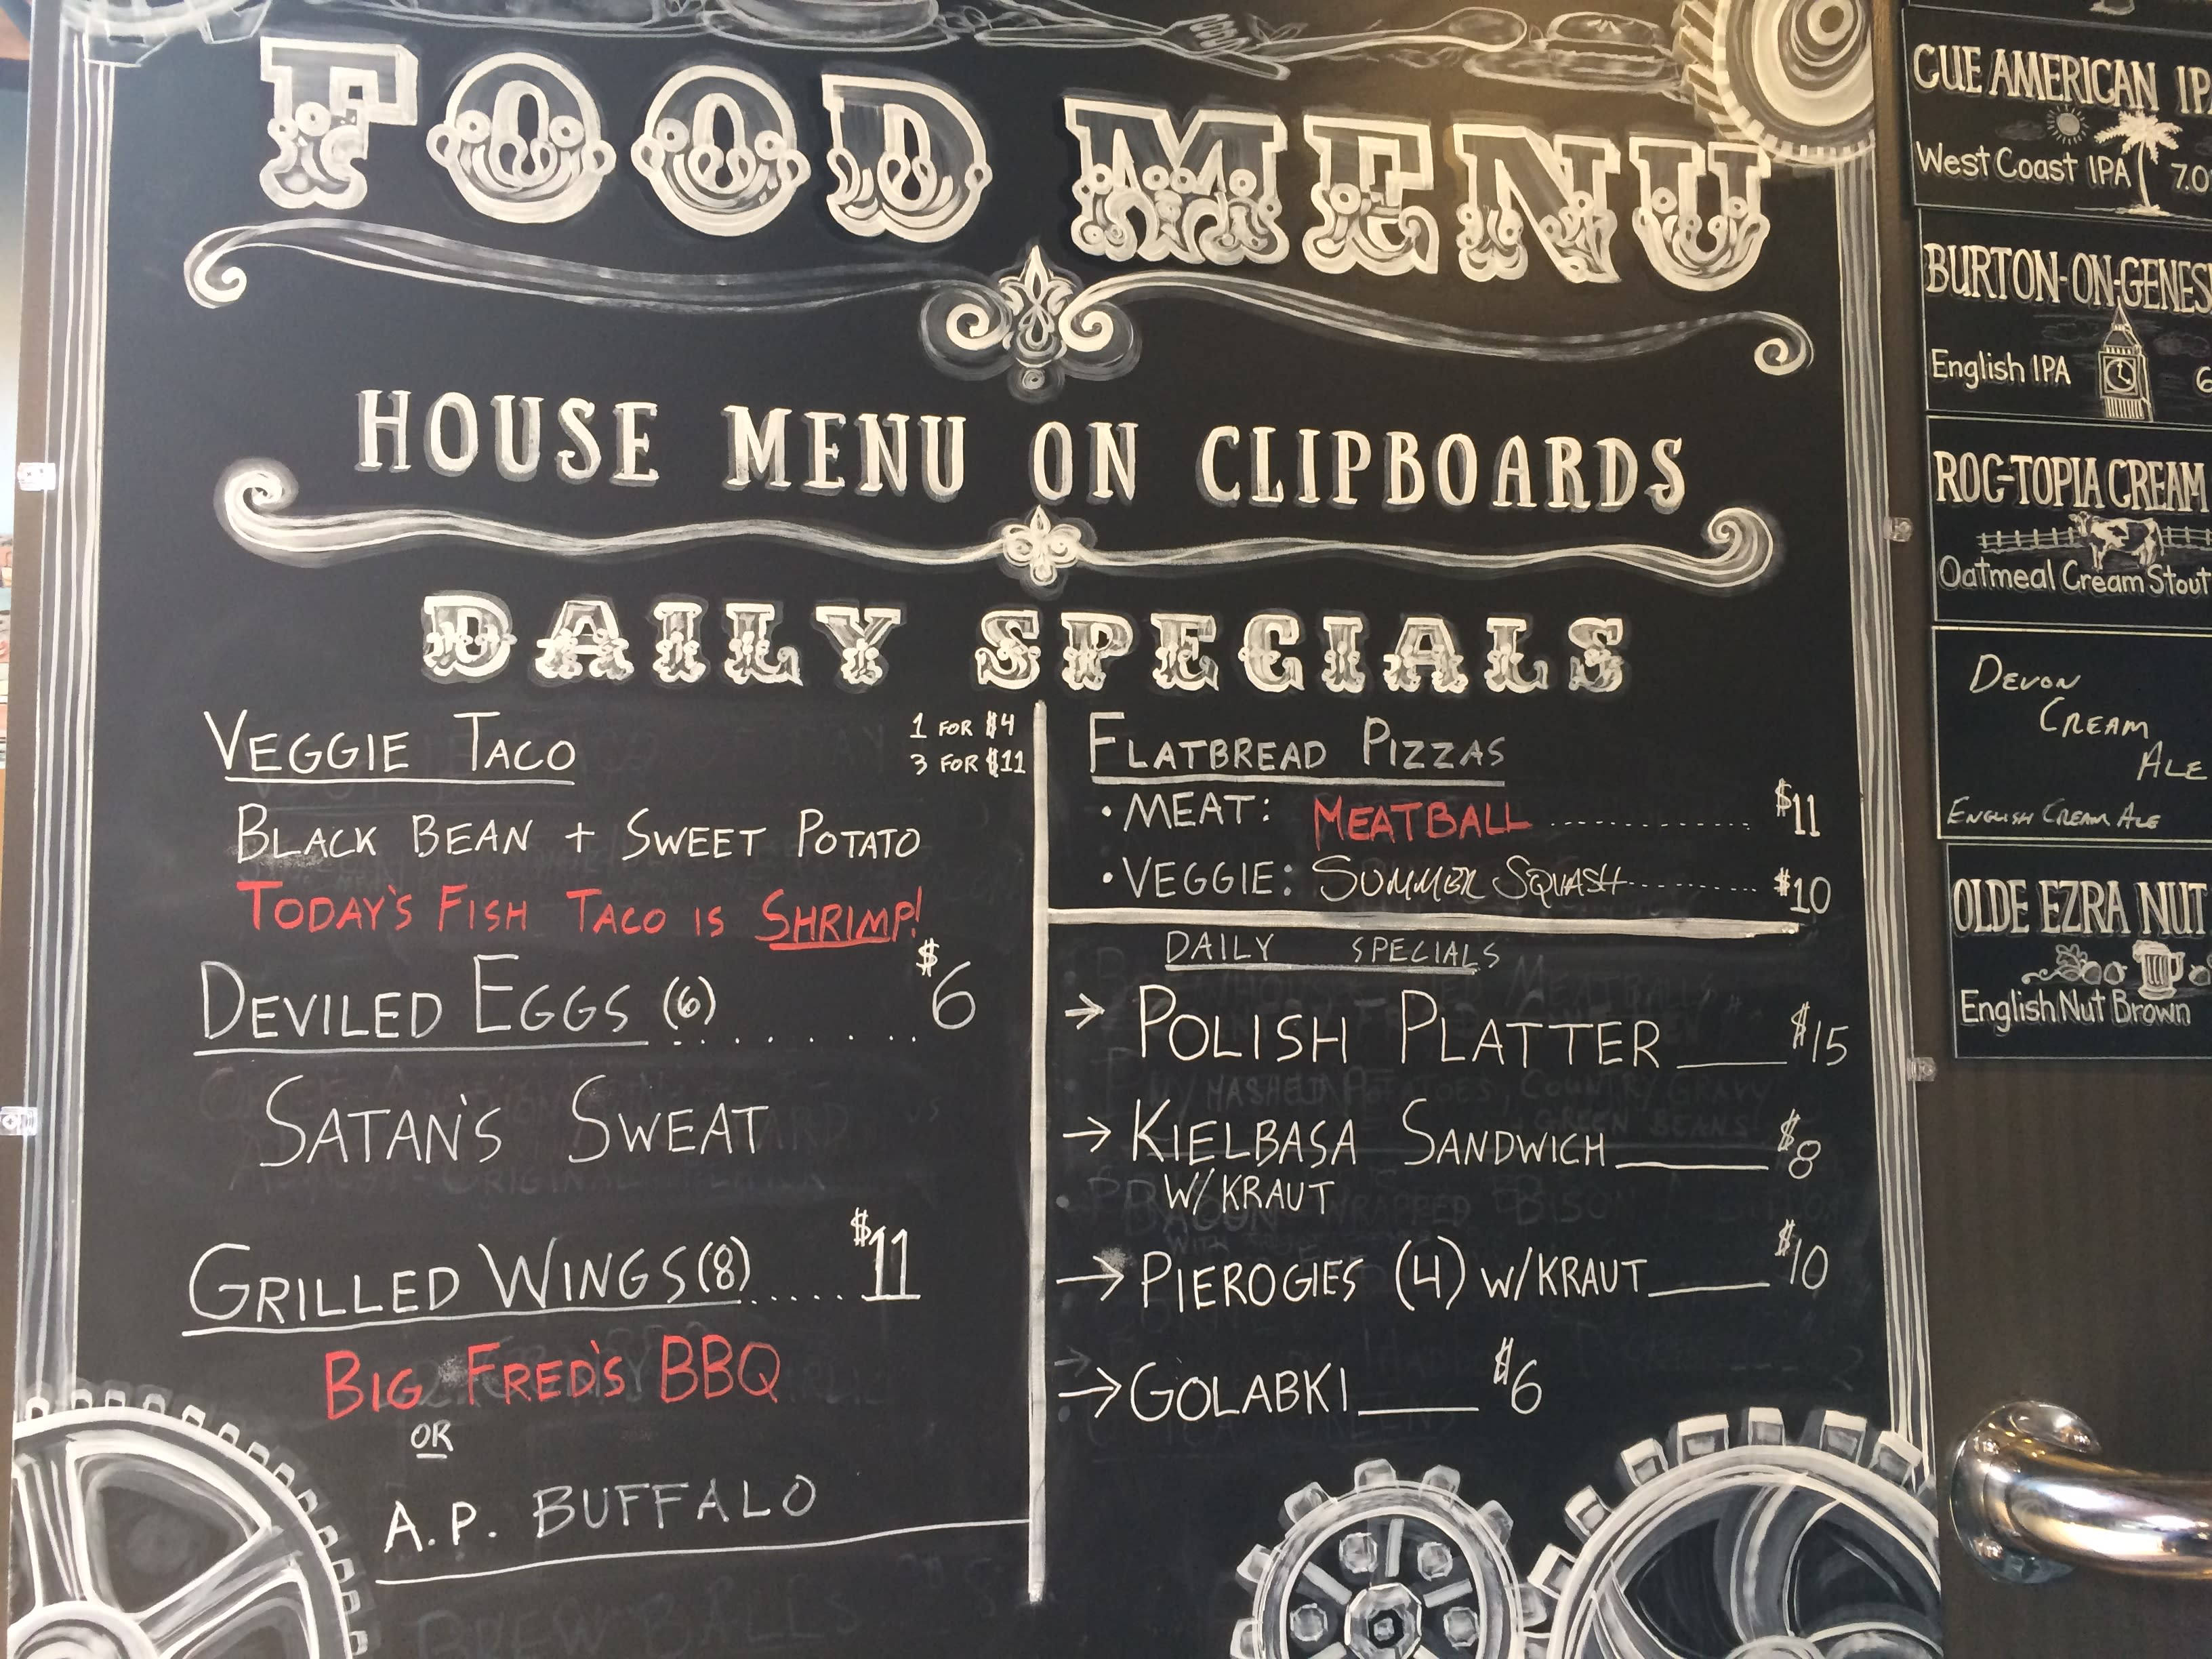 FOOD MENU
HOUSE MENU ON CLIPBOARDS
DAILY SPECIALS
VEGGIE TACO
1 FOR $4
3 FOR $11
BLACK BEAN + SWEET POTATO
TODAY'S FISH TACO IS SHRIMP!
DEVILED EGGS (6)........ $6
SATAN'S SWEAT
GRILLED WINGS (8)..... $11
BIG FRED'S BBQ
OR
A.P. BUFFALO
FLATBREAD PIZZAS
• MEAT: MEATBALL .................. $11
• VEGGIE: SUMMER SQUASH ............ $10
DAILY SPECIALS
→ POLISH PLATTER ____ $15
→ KIELBASA SANDWICH ____ $8
W/ KRAUT
→ PIEROGIES (4) W/KRAUT ____ $10
→ GOLABKI ____ $6
CUE AMERICAN IP
West Coast IPA 7.0
BURTON-ON-GENES
English IPA 6
ROC-TOPIA CREAM
Oatmeal Cream Stout
DEVON
CREAM
ALE
ENGLISH CREAM ALE
OLDE EZRA NUT
English Nut Brown